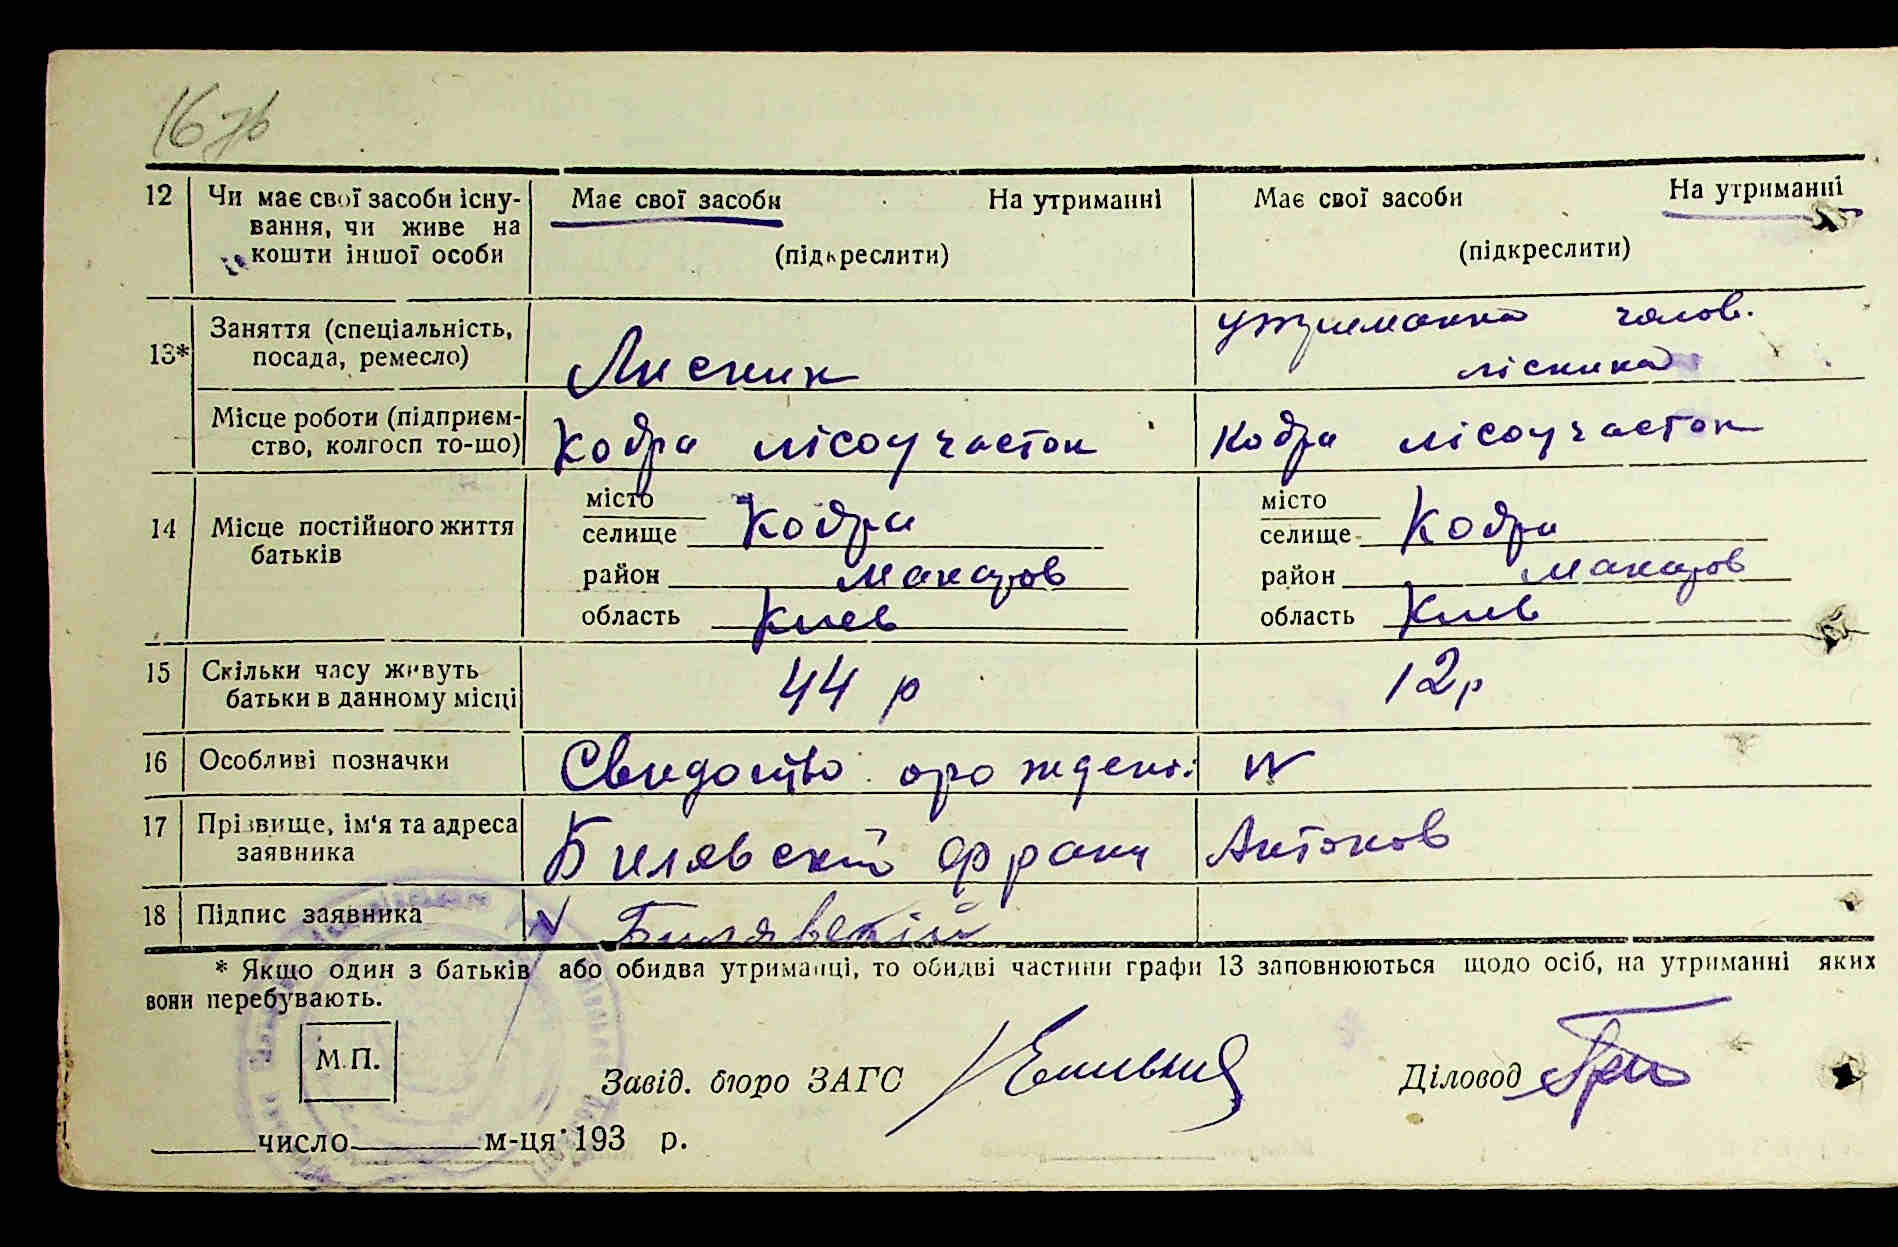 167б
12 Чи має свої засоби існу- Має свої засоби На утриманні Має свої засоби На утриманні
вання, чи живе на
кошти іншої особи (підкреслити) (підкреслити)
13* Заняття (спеціальність, утриманка чолов.
посада, ремесло) Лисник лісника
Місце роботи (підприєм-
ство, колгосп то-що) Кодра лісоучасток Кодра лісоучасток
місто місто
14 Місце постійного життя селище Кодра селище Кодра
батьків
район Макаров район Макаров
область Киев область Киев
15 Скільки часу живуть 44 р 12р
батьки в данному місці
16 Особливі позначки Свидоство орождені N
17 Прізвище, ім'я та адреса Билявский Франц Антонов
заявника
18 Підпис заявника V Билявский
* Якщо один з батьків або обидва утриманці, то обидві частини графи 13 заповнюються щодо осіб, на утриманні яких
вони перебувають.
М.П.
Завід. бюро ЗАГС Діловод
число м-ця 193 р.